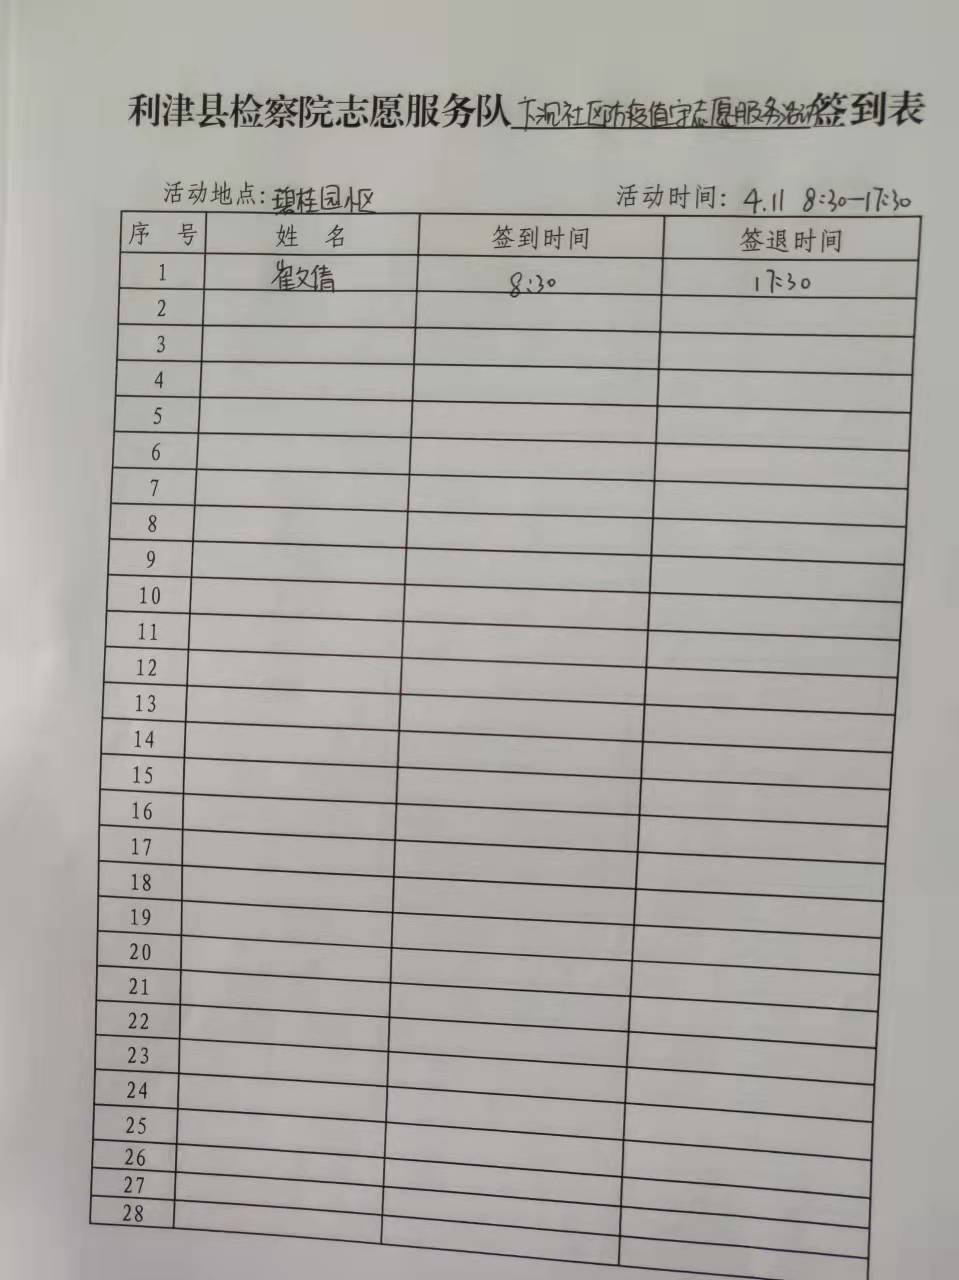 利津县检察院志愿服务队卞况社区防疫值守志愿服务活动签到表
活动地点：碧桂园小区 活动时间：4.11 8:30-17:30
序 号 姓 名 签到时间 签退时间
1 崔文倩 8:30 17:30
2
3
4
5
6
7
8
9
10
11
12
13
14
15
16
17
18
19
20
21
22
23
24
25
26
27
28